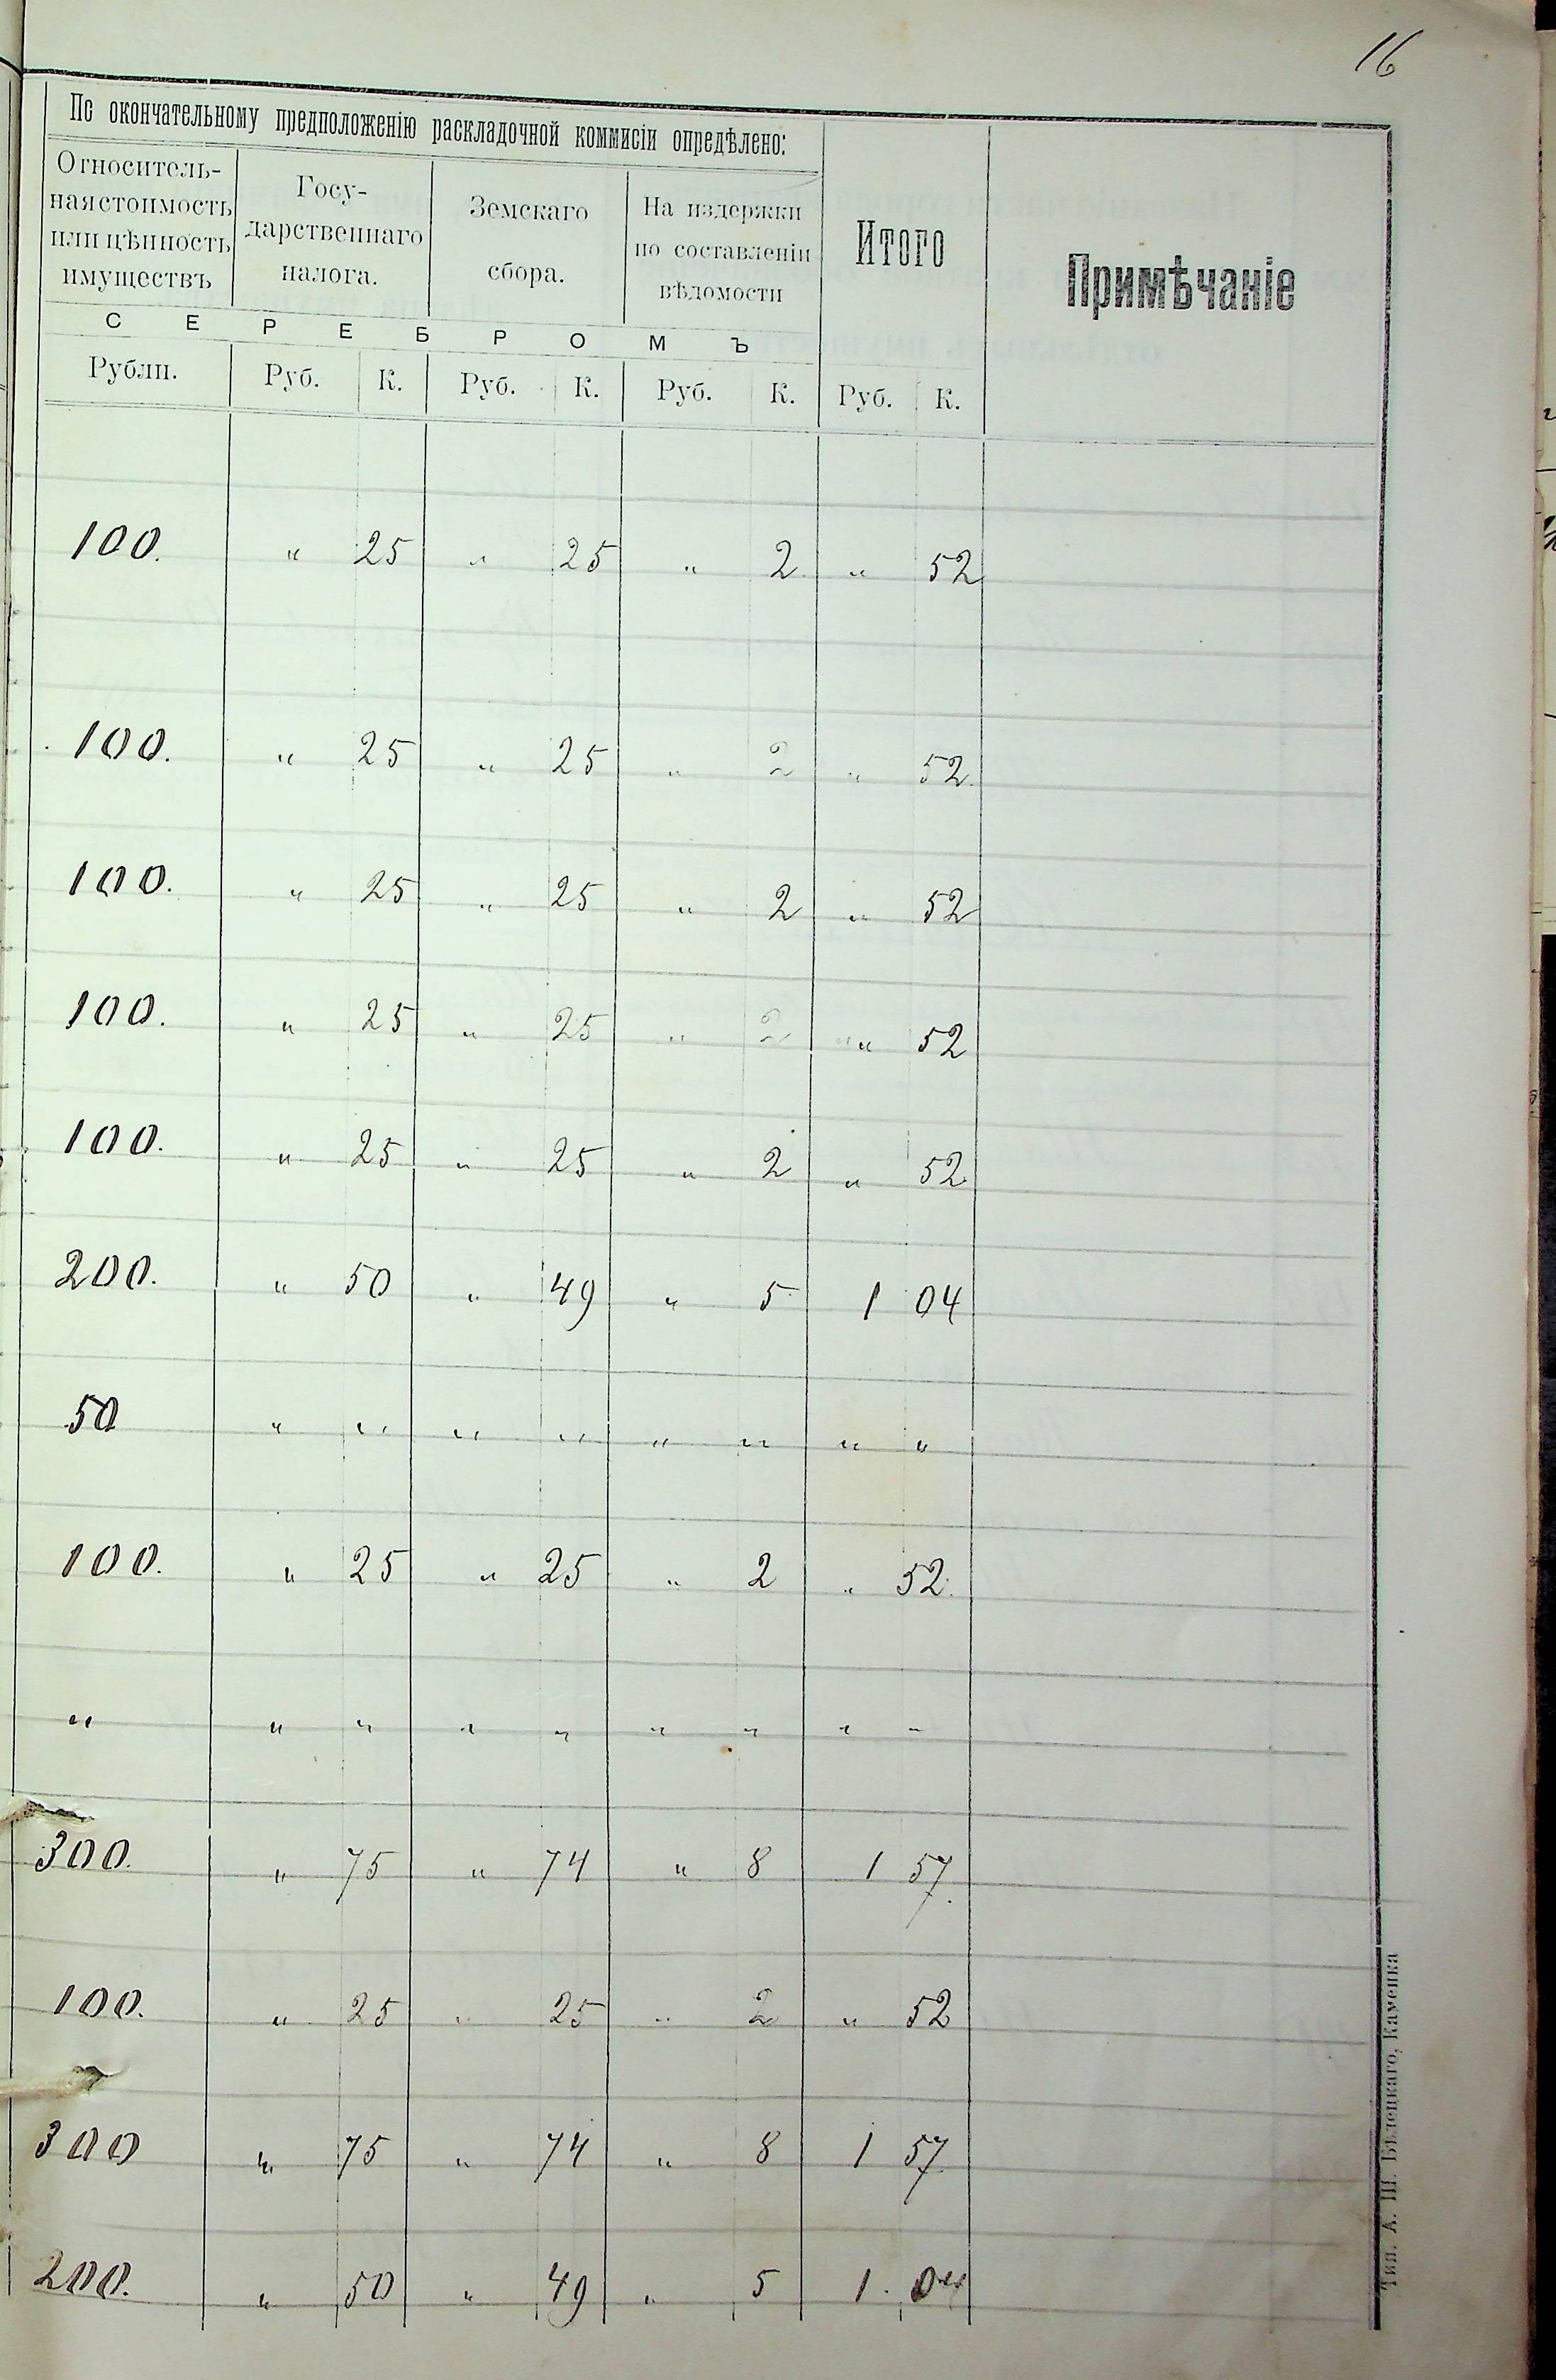 16
По окончательному предположенію раскладочной коммисіи опредѣлено:
Относитель-
ная стоимость
или цѣнность
имуществъ
Госу-
дарственнаго
налога.
Земскаго
сбора.
На издержки
по составленіи
вѣдомости
Итого
Примѣчаніе
С Е Р Е Б Р О М Ъ
Рубли. Руб. К. Руб. К. Руб. К. Руб. К.
100. " 25 " 25 " 2 " 52
100. " 25 " 25 " 2 " 52
100. " 25 " 25 " 2 " 52
100. " 25 " 25 " 2 " 52
100. " 25 " 25 " 2 " 52
200. " 50 " 49 " 5 1 04
50 " " " " " " " "
100. " 25 " 25 " 2 " 52
" " " " " " " " "
300. " 75 " 74 " 8 1 57
100. " 25 " 25 " 2 " 52
300 " 75 " 74 " 8 1 57
200. " 50 " 49 " 5 1 04
Тип. А. Ш. Бѣлецкаго, Каменка